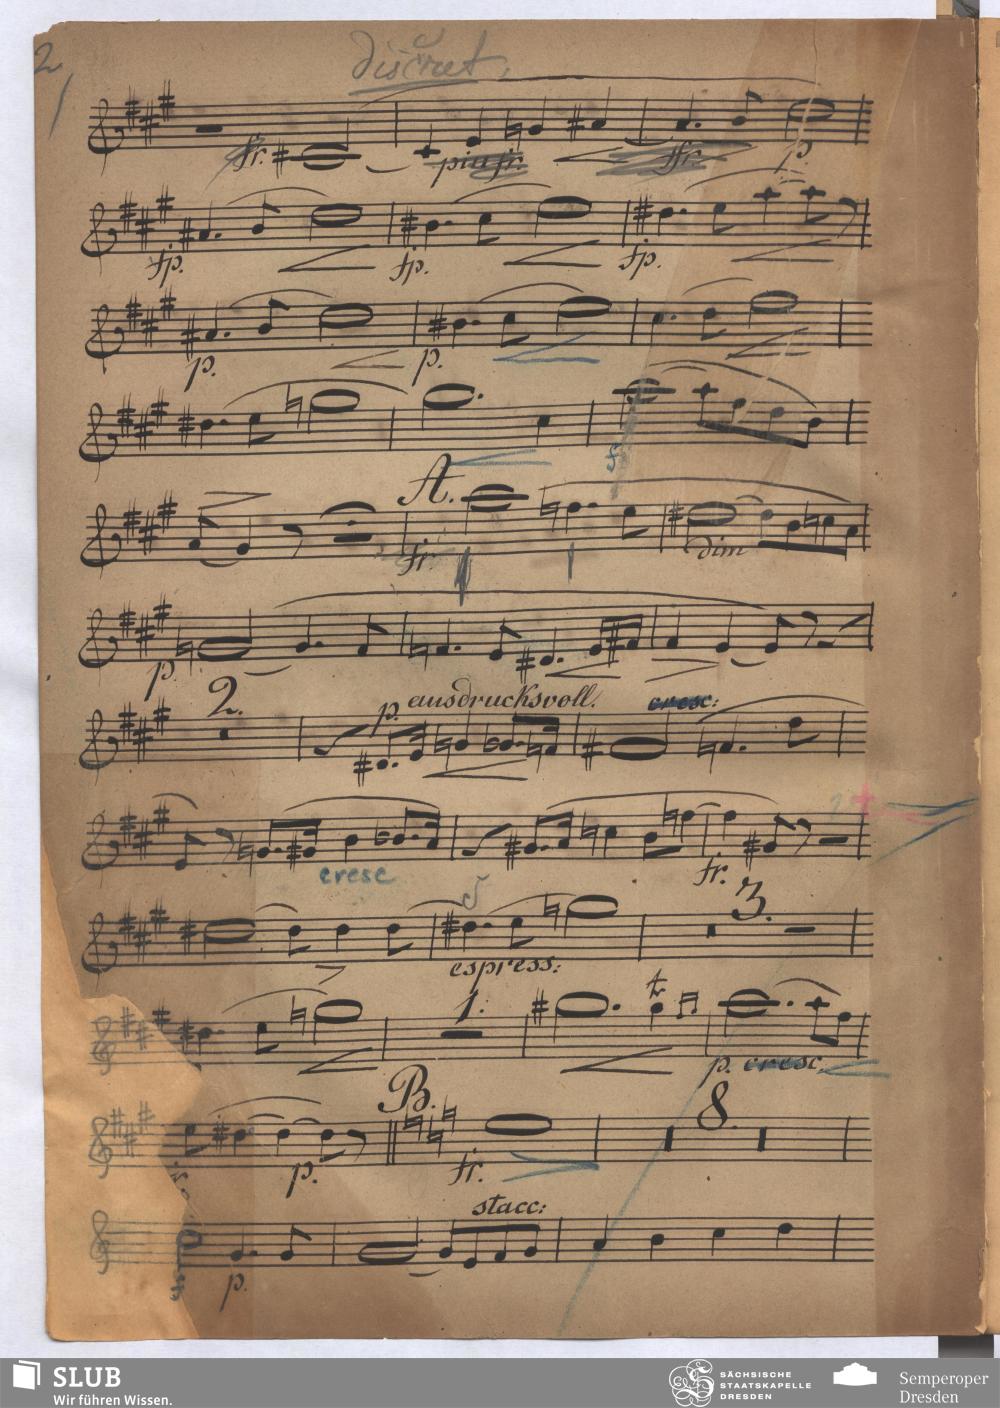 2
discret.
fr. piu fr. ffr. p.
fp. fp. fp.
p. p.
f
A.
fr. dim
p.
2. p. ausdrucksvoll. cresc:
cresc fr.
3.
espress:
1. tr
p. cresc.
B. 8.
p. fr.
stacc:
p.
SLUB
Wir führen Wissen.
SÄCHSISCHE
STAATSKAPELLE
DRESDEN
Semperoper
Dresden